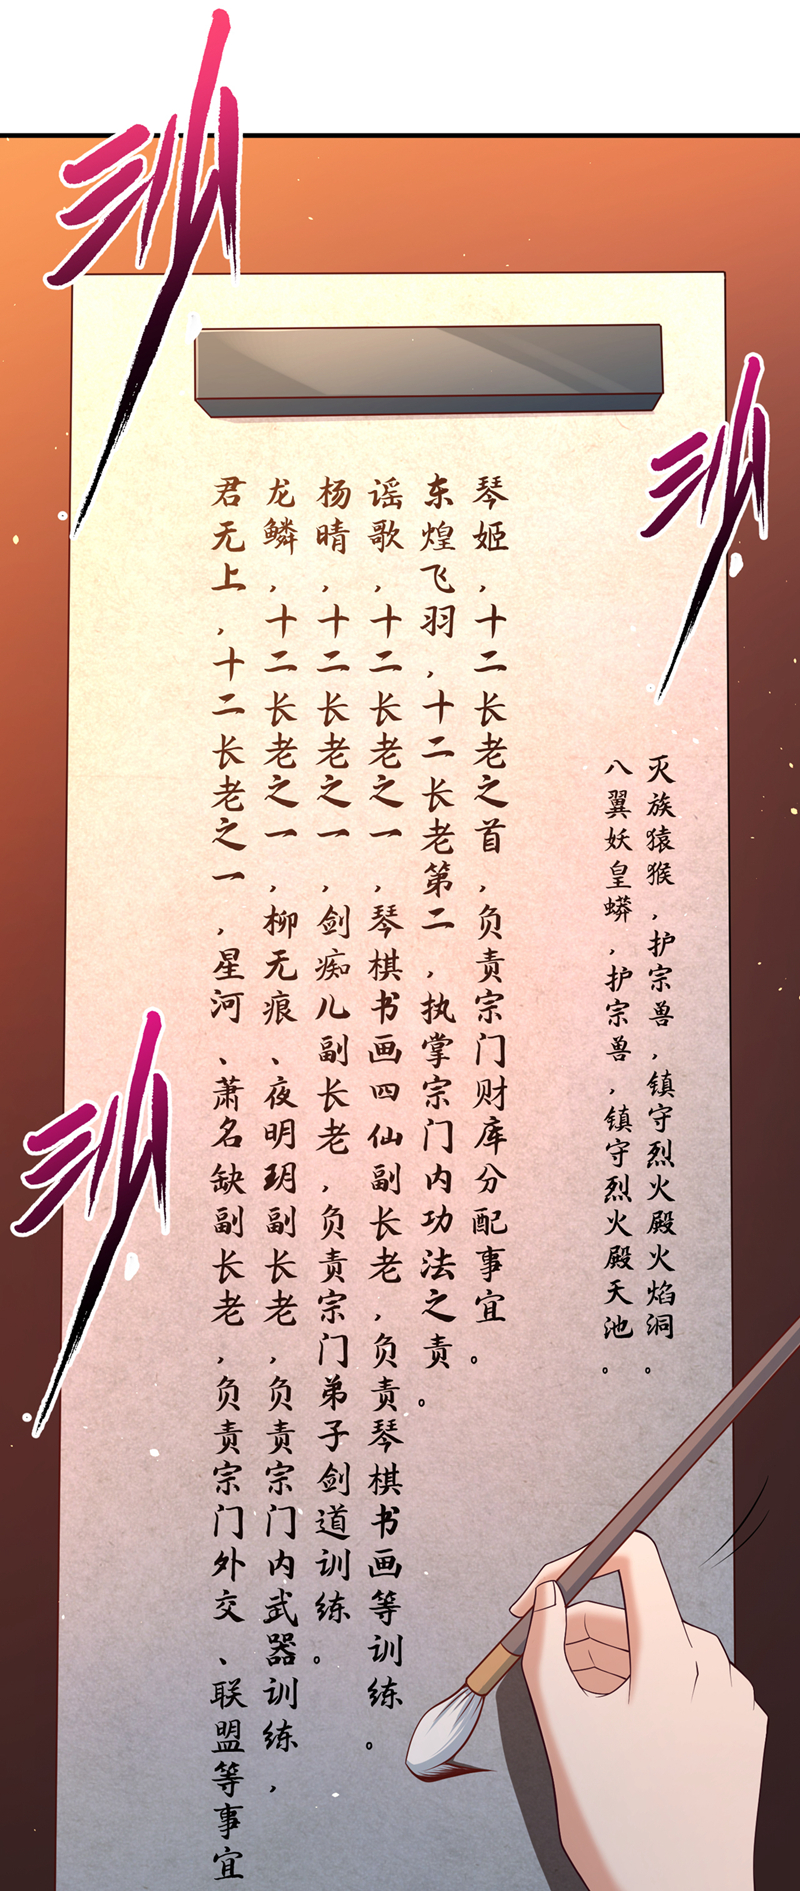 唰
唰
唰
灭族猿猴，护宗兽，镇守烈火殿火焰洞。
八翼妖皇蟒，护宗兽，镇守烈火殿天池。
琴姬，十二长老之首，负责宗门财库分配事宜。
东煌飞羽，十二长老第二，执掌宗门内功法之责。
谣歌，十二长老之一，琴棋书画四仙副长老，负责琴棋书画等训练。
杨晴，十二长老之一，剑痴儿副长老，负责宗门弟子剑道训练。
龙鳞，十二长老之一，柳无痕、夜明玥副长老，负责宗门内武器训练，
君无上，十二长老之一，星河、萧名缺副长老，负责宗门外交、联盟等事宜